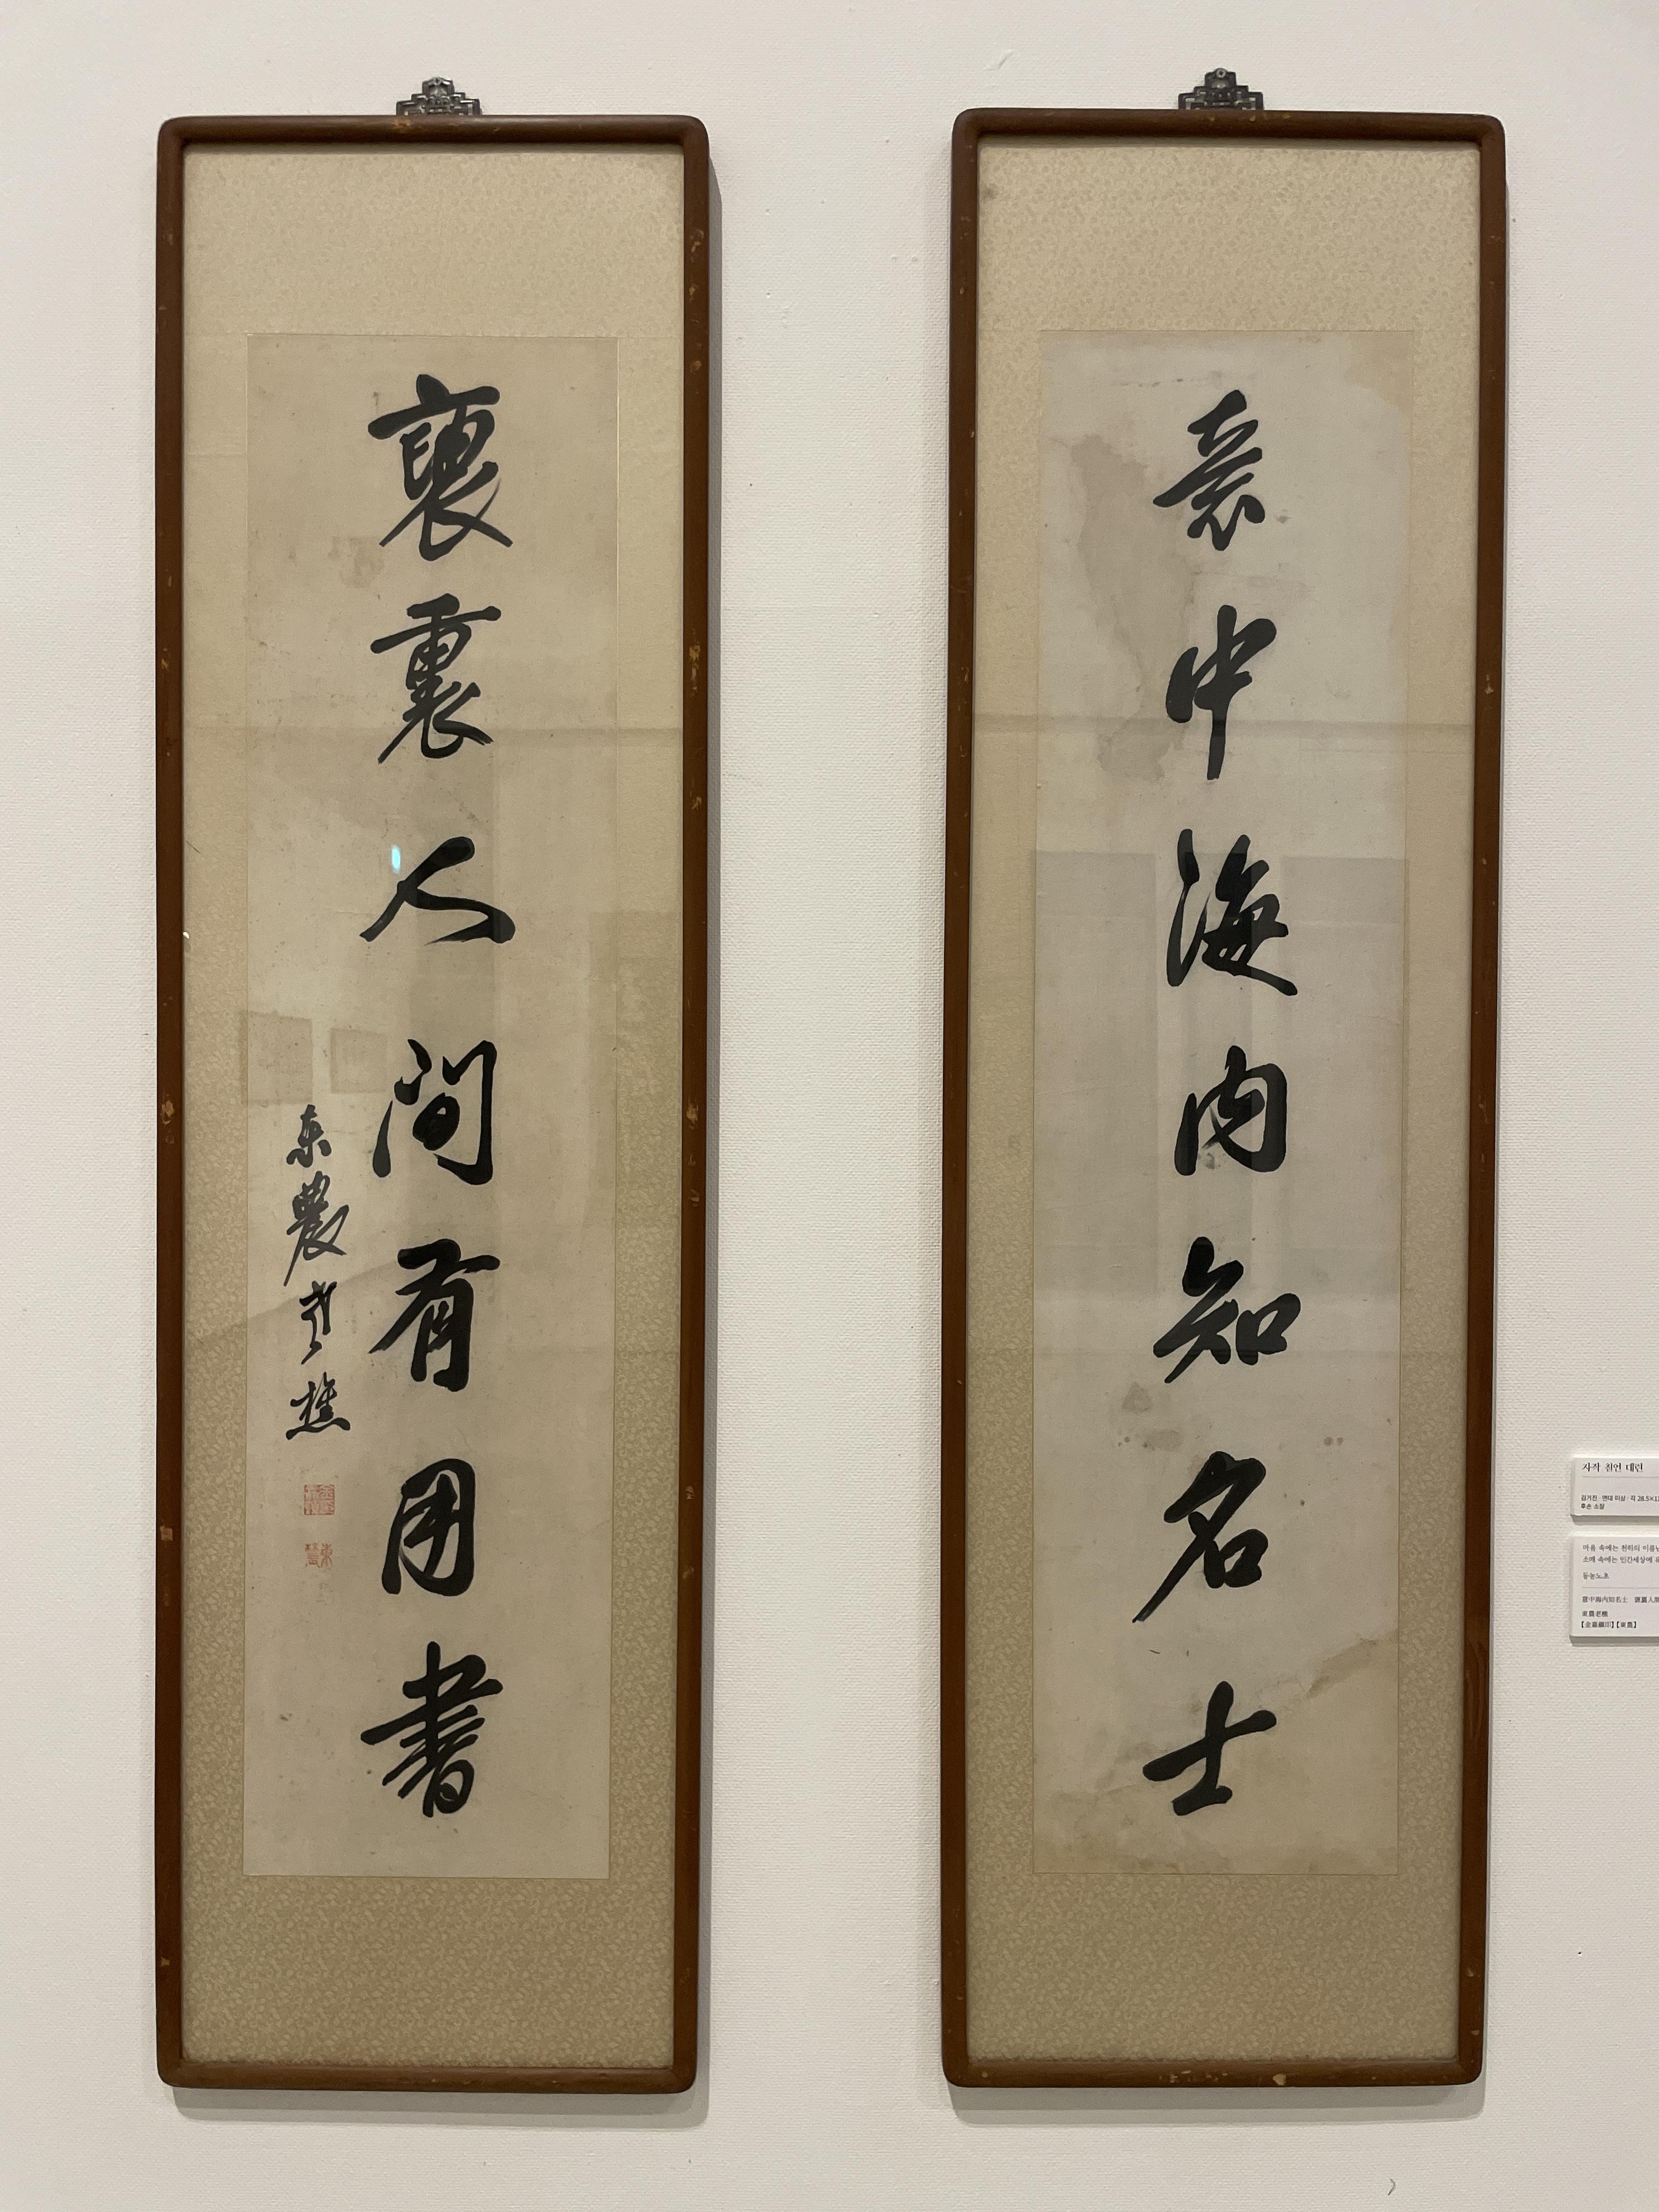 意中海內知名士
褏裏人間有用書
東農老樵
자작 첨언 대련
김가진 · 연대 미상 · 각 28.5×1
후손 소장
마음 속에는 천하의 이름난
소매 속에는 인간세상에 유
동농노초
意中海內知名士 褏裏人間
東農老樵
【金嘉鎭印】【東農】